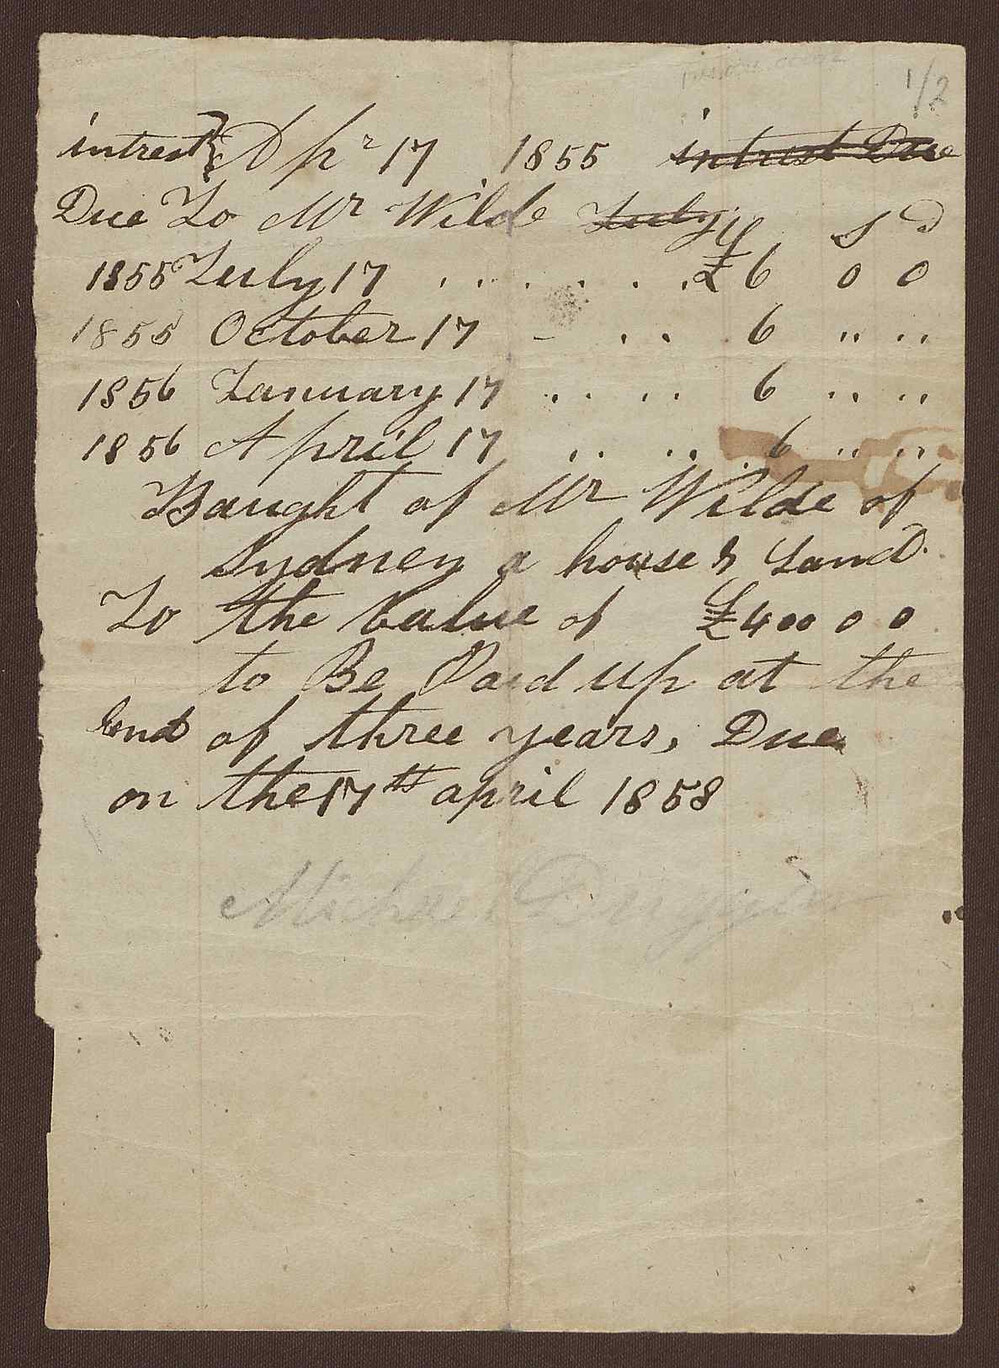 1/2
intrest} Apr 17 1855 intrest Due
Due To Mr Wilde July
£ S D
1855 July 17 . . . . . . . £6 0 0
1855 October 17 - . . . 6 ,, ,,
1856 January 17 . . . . 6 ,, ,,
1856 April 17 . . . . . 6 ,, ,,
Baught of Mr Wilde of
Sydney a house & Land
To the Value of £400 0 0
to Be Paid up at the
End of three years, Due
on the 17th april 1858
Michael Duggan